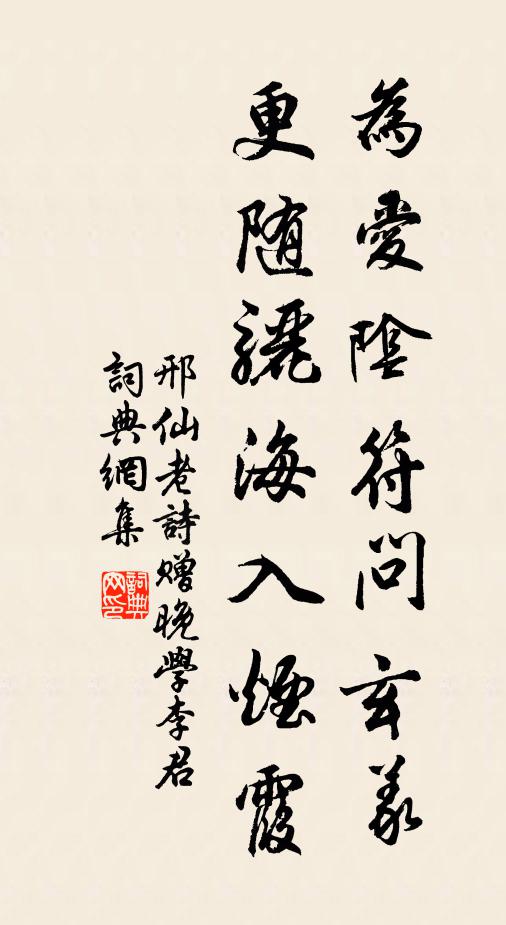 為愛陰符問玄義
更随驪海入煙霞
邢仙老詩贈晚學李君
詞典網集
詞典网印